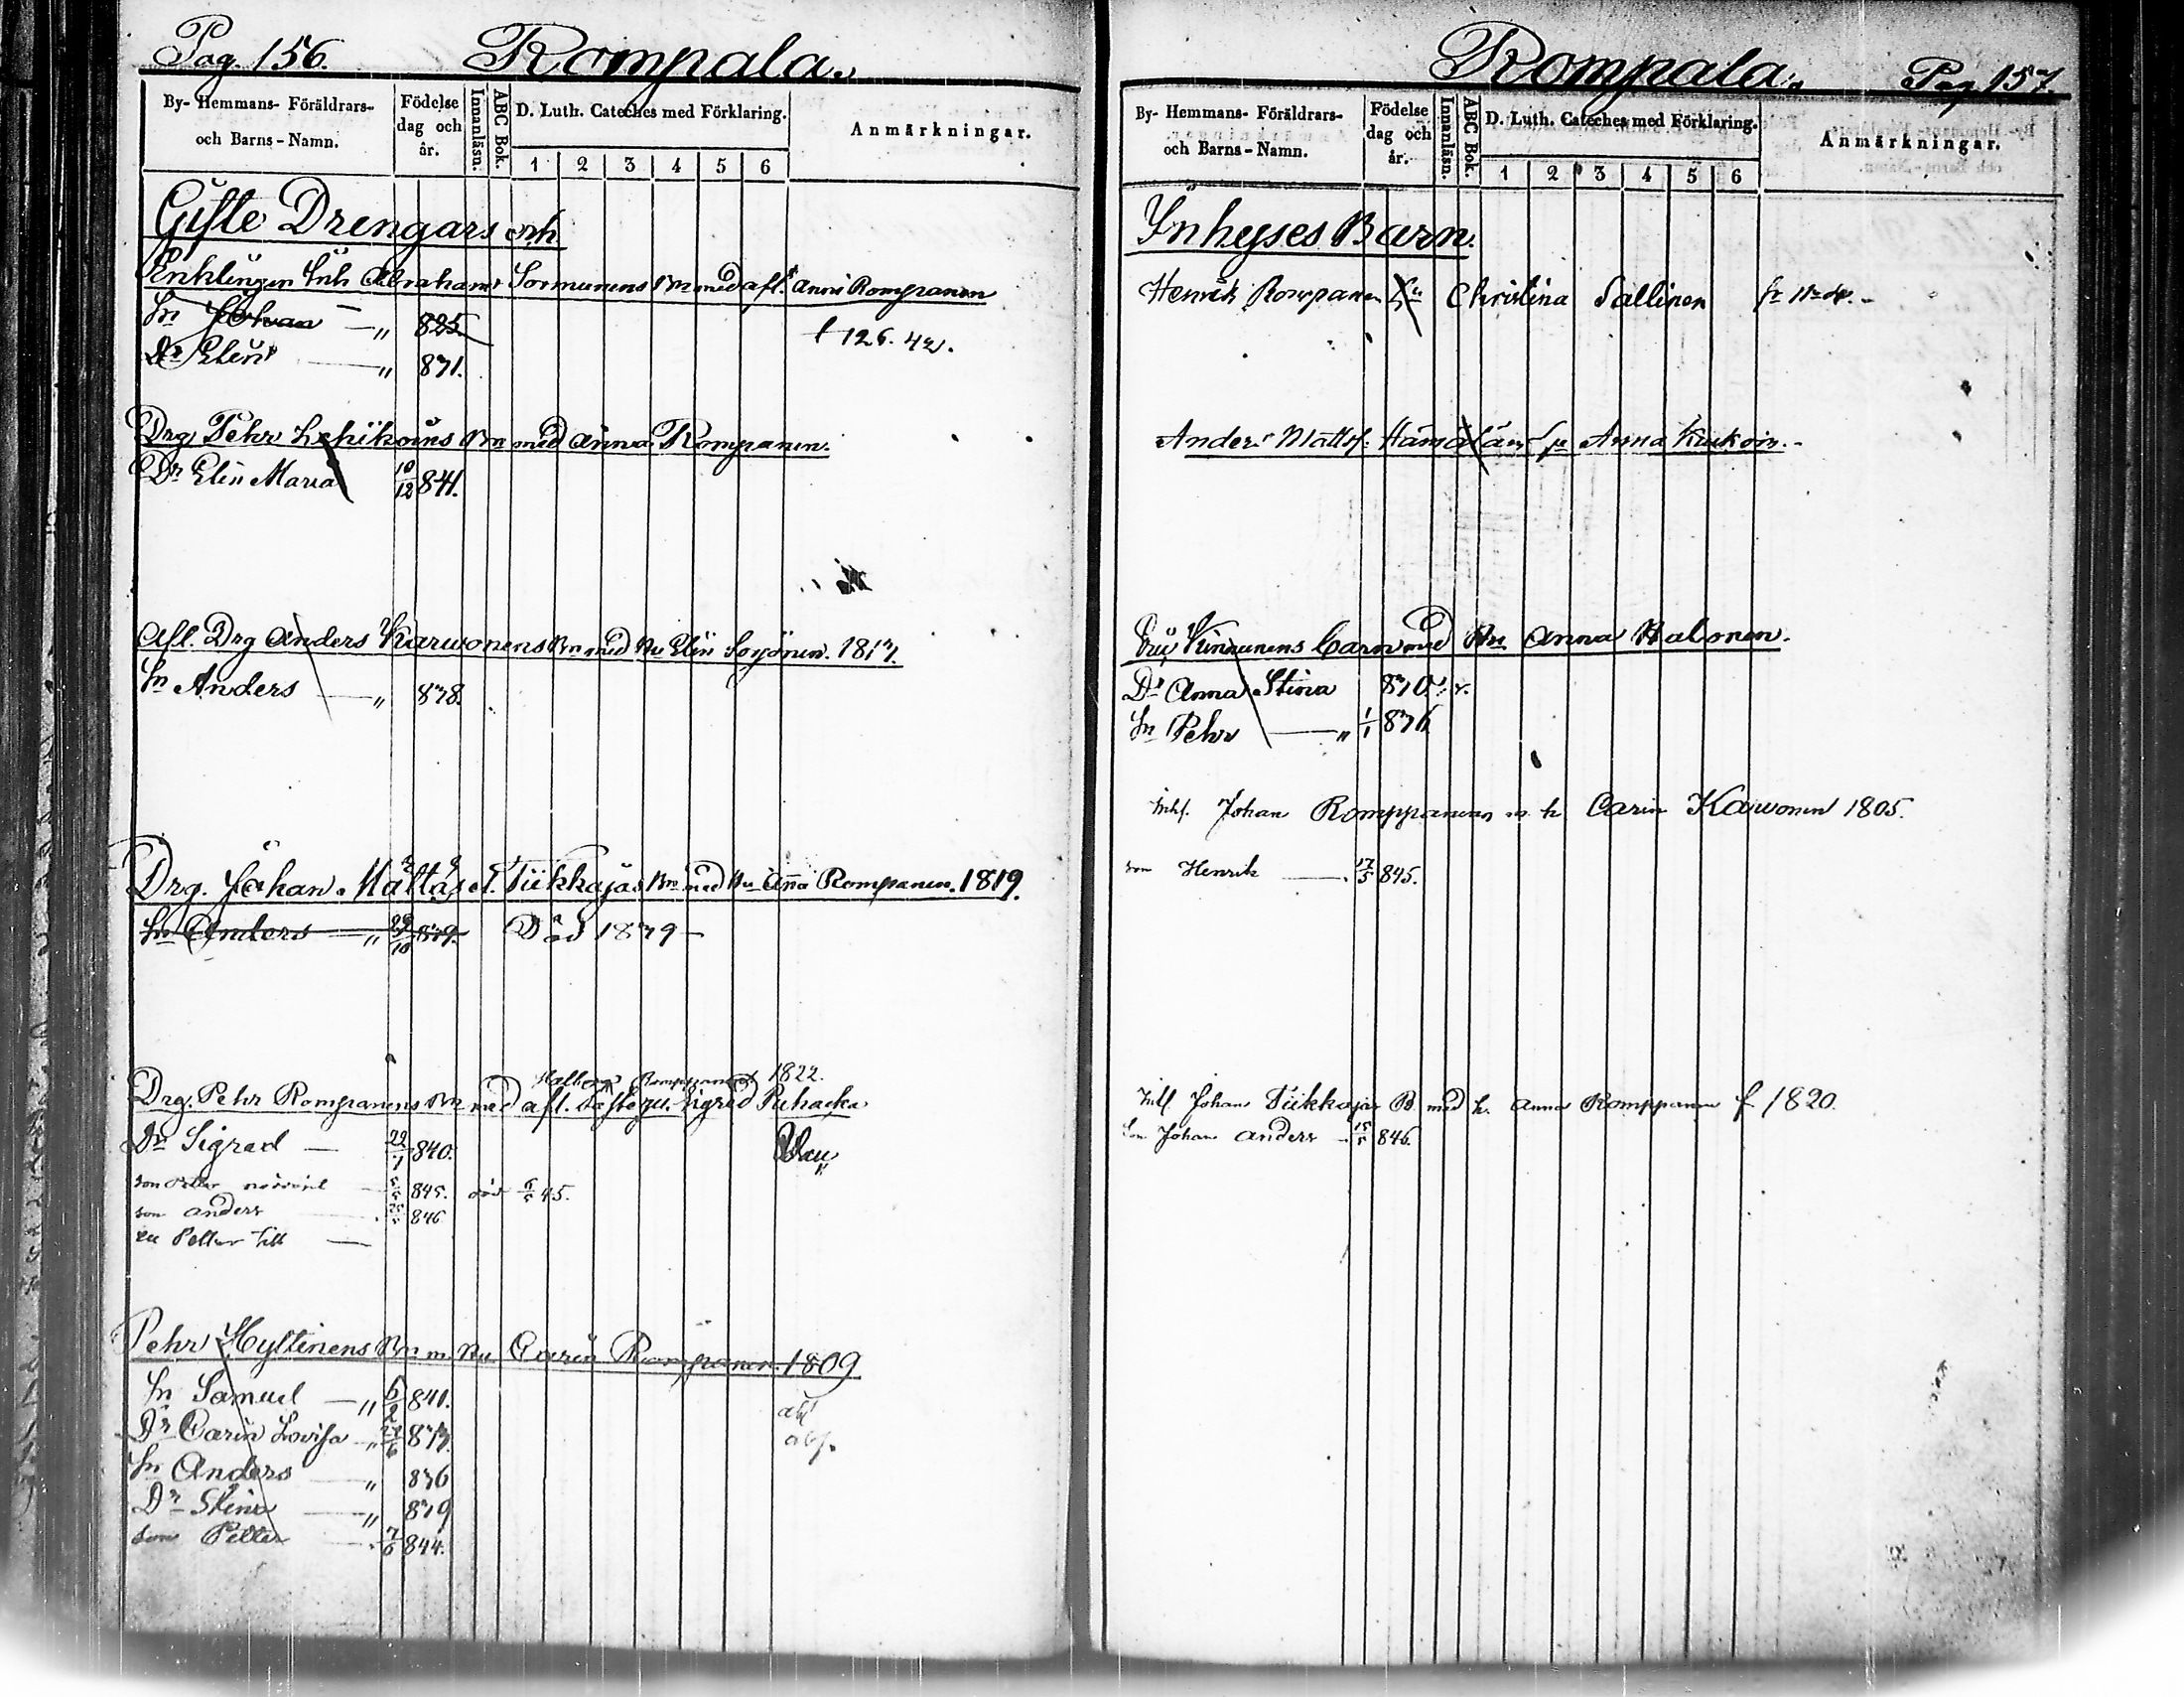 Pag. 156. Rompala.
By- Hemmans- Föräldrars- och Barns-Namn. Födelse dag och år. Innanläsn. ABC Bok. D. Luth. Cateches med Förklaring. 1 2 3 4 5 6 Anmärkningar.
Gifte Drengars
Enklingen Inh Abraham Sormunens Bn med afl. Anna Rompanen
Sn Johan — " 825. 126. 42.
Dr Elin — " 831.
Drg Pehr Lehikoins Bn med Anna Rompanen.
Dr Elin Maria 10/12 841.
Afl. Drg Anders Karwonens Bn med Hu Elin Sorjonen. 1813.
Sn Anders — " 838.
Drg. Johan Tiikkajas Bn med Hu Anna Rompanen. 1819.
Sn Anders — " 29/10 839. Död 1839
Rompanen 1822.
Drg. Pehr Rompanens Bn med afl. Sigred Puhacka
Dr Sigred — 22/1 840.
son 845. död 45.
son Anders 846
Petter till —
Pehr Hyttinens Bn m. Hu Carin Rompanen. 1809
Sn Samuel — " 6/2 841.
Dr Carin Lovisa " 27/6 833.
Sn Anders — " 836
Dr Stina — " 839
son Petter 844.
Rompala. Pag 157.
By- Hemmans- Föräldrars- och Barns-Namn. Födelse dag och år. Innanläsn. ABC Bok. D. Luth. Cateches med Förklaring. 1 2 3 4 5 6 Anmärkningar.
Inhyses Barn.
Henrik Rompanen Christina Sallinen
Anders Mattss. Hämäläin Anna Kukoin.
Kinnunens Barn med Hu Anna Halonen.
Dr Anna Stina 830
Sn Pehr — " 1/1 836
Inhs. Johan Romppanen m. h. Carin Karwonen 1805.
son Henrik — 17/5 845.
Johan Tiikkajas B. med h. Anna Romppanen f 1820.
Son Johan Anders 846.